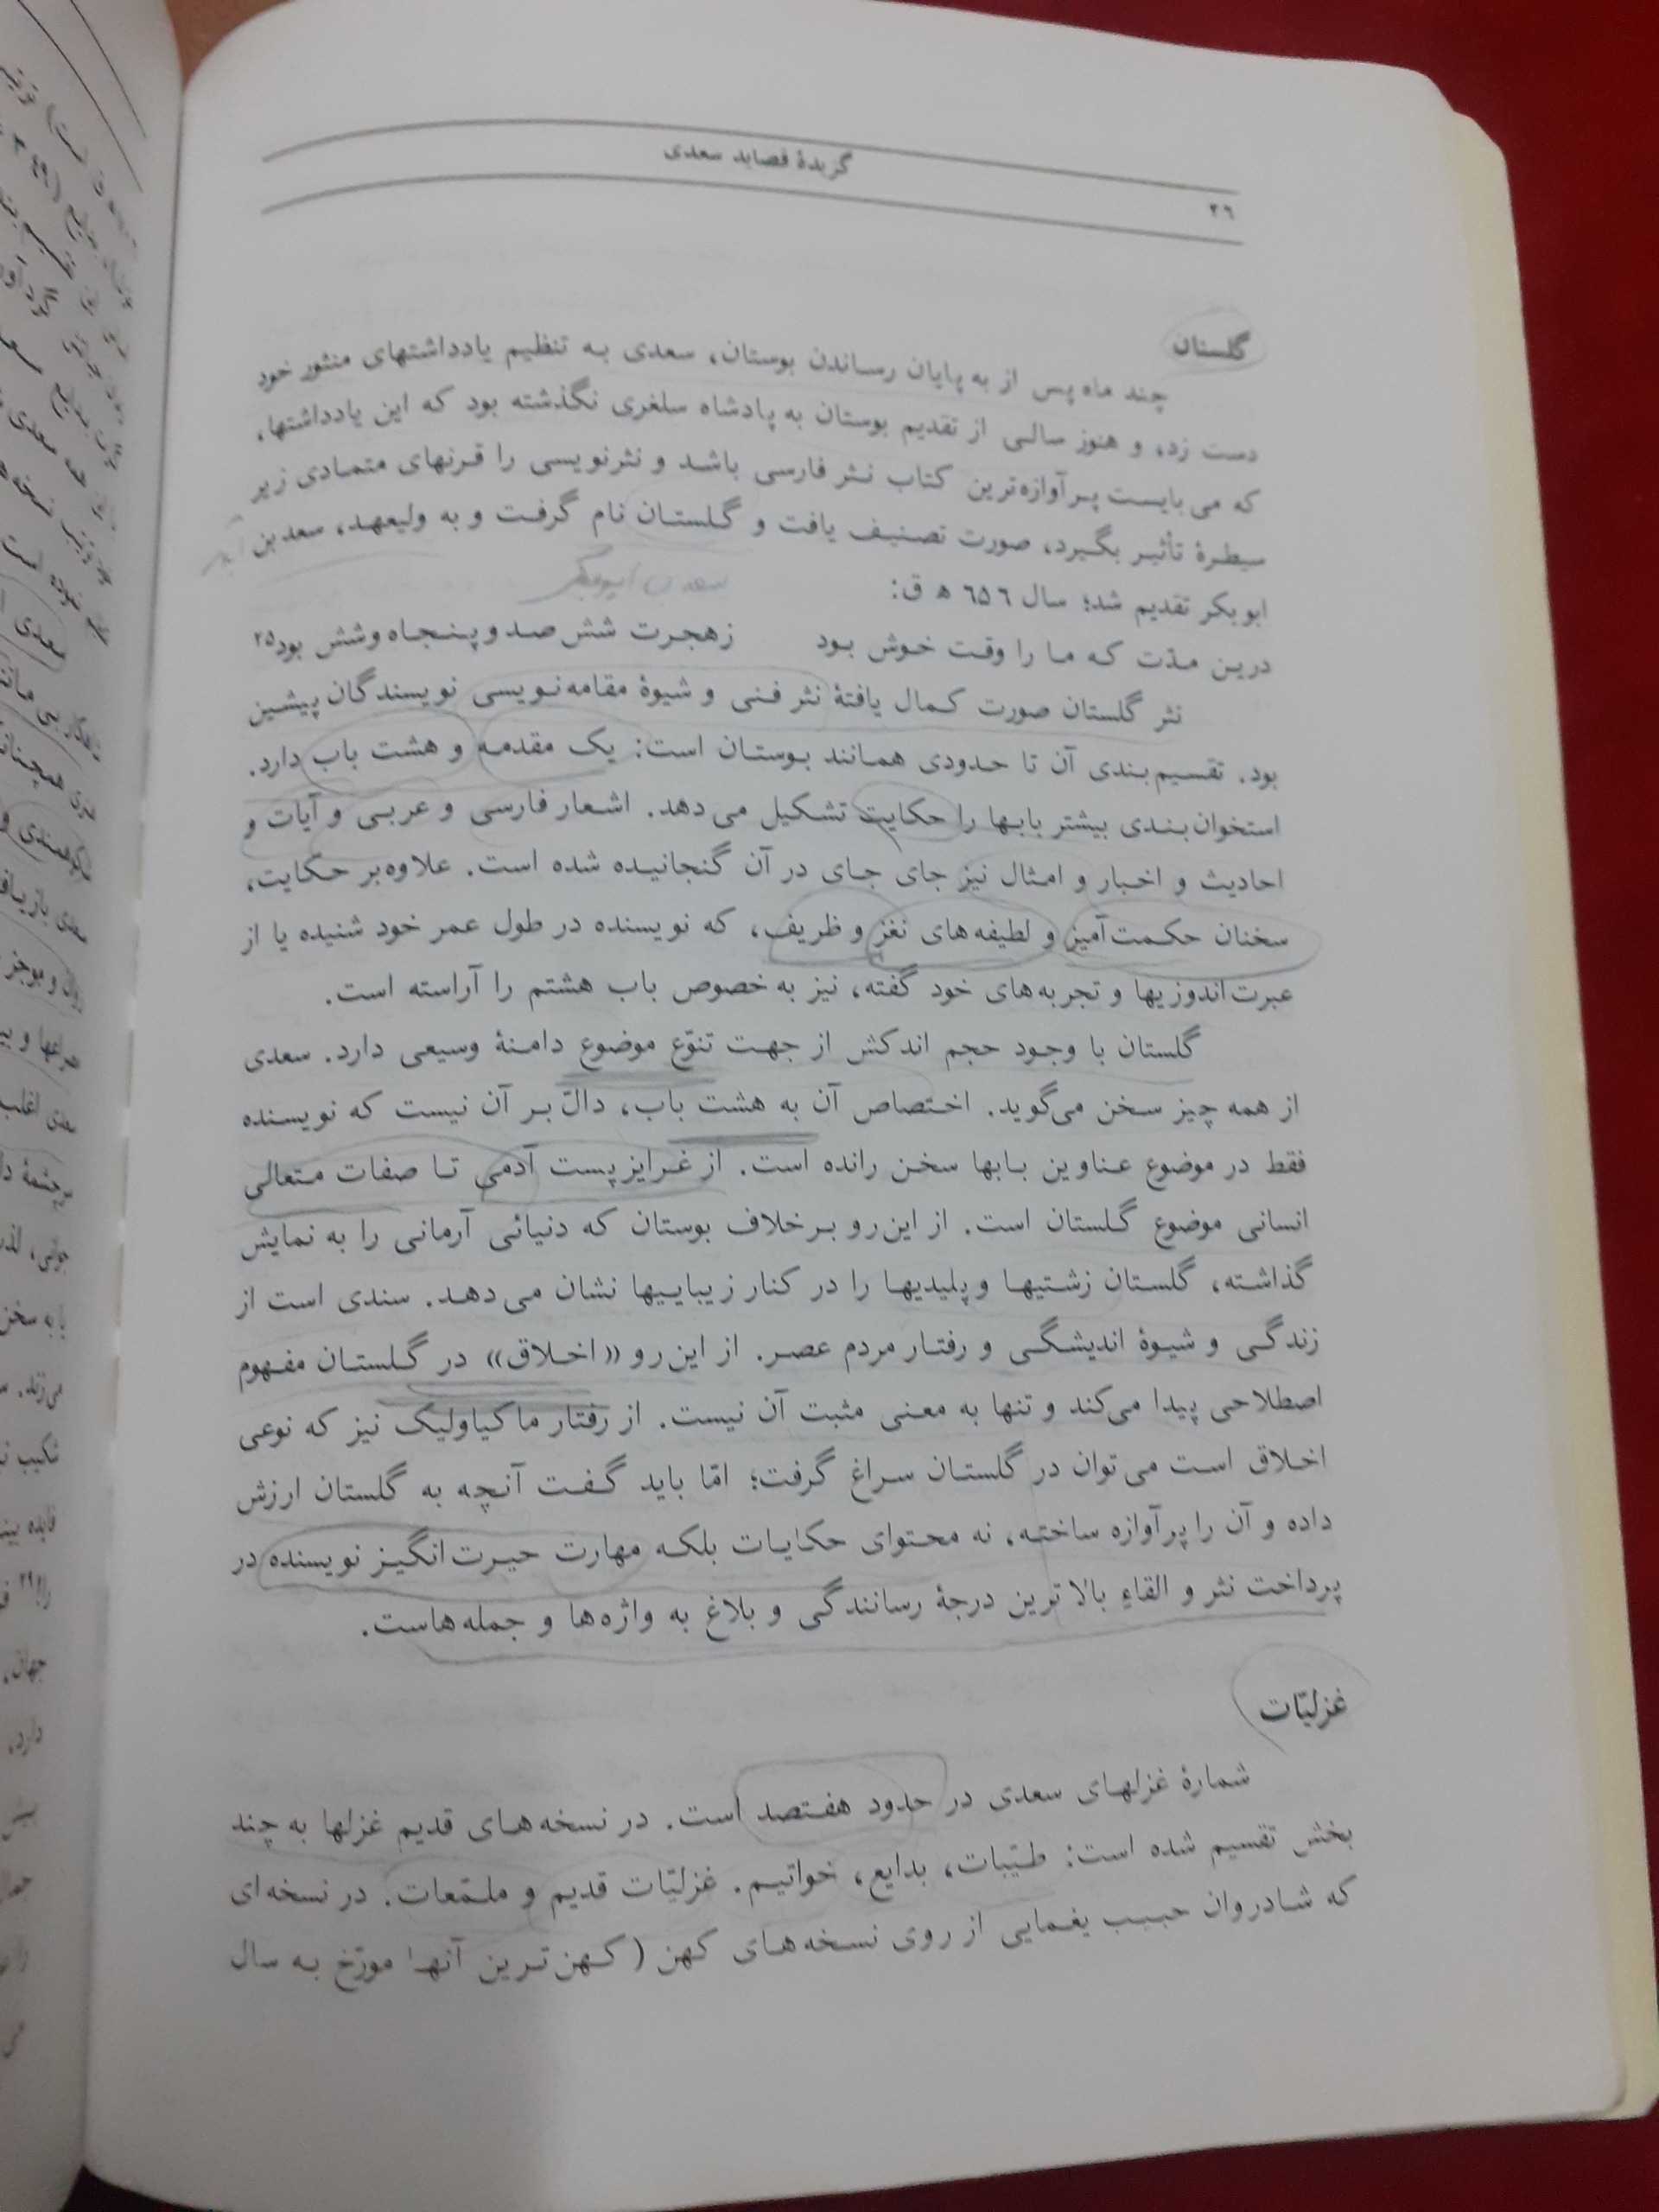 گزیدهٔ قصاید سعدی
۲٦
گلستان
چند ماه پس از به پایان رساندن بوستان، سعدی به تنظیم یادداشتهای منثور خود
دست زد، و هنوز سالی از تقدیم بوستان به پادشاه سلغری نگذشته بود که این یادداشتها،
که می‌بایست پرآوازه‌ترین کتاب نثر فارسی باشد و نثرنویسی را قرنهای متمادی زیر
سیطرهٔ تأثیر بگیرد، صورت تصنیف یافت و گلستان نام گرفت و به ولیعهد، سعدبن
ابوبکر تقدیم شد؛ سال ٦٥٦ ه‍ ق:
سعدبن ابوبکر
درین مدّت که ما را وقت خوش بود زهجرت شش صد و پنجاه و شش بود۲۵
نثر گلستان صورت کمال یافتهٔ نثر فنی و شیوهٔ مقامه‌نویسی نویسندگان پیشین
بود. تقسیم‌بندی آن تا حدودی همانند بوستان است: یک مقدمه و هشت باب دارد.
استخوان‌بندی بیشتر بابها را حکایت تشکیل می‌دهد. اشعار فارسی و عربی و آیات و
احادیث و اخبار و امثال نیز جای جای در آن گنجانیده شده است. علاوه بر حکایت،
سخنان حکمت‌آمیز و لطیفه‌های نغز و ظریف، که نویسنده در طول عمر خود شنیده یا از
عبرت‌اندوزیها و تجربه‌های خود گفته، نیز به خصوص باب هشتم را آراسته است.
گلستان با وجود حجم اندکش از جهت تنوّع موضوع دامنهٔ وسیعی دارد. سعدی
از همه چیز سخن می‌گوید. اختصاص آن به هشت باب، دالّ بر آن نیست که نویسنده
فقط در موضوع عناوین بابها سخن رانده است. از غرایز پست آدمی تا صفات متعالی
انسانی موضوع گلستان است. از این رو برخلاف بوستان که دنیائی آرمانی را به نمایش
گذاشته، گلستان زشتیها و پلیدیها را در کنار زیباییها نشان می‌دهد. سندی است از
زندگی و شیوهٔ اندیشگی و رفتار مردم عصر. از این رو «اخلاق» در گلستان مفهوم
اصطلاحی پیدا می‌کند و تنها به معنی مثبت آن نیست. از رفتار ماکیاولیک نیز که نوعی
اخلاق است می‌توان در گلستان سراغ گرفت؛ امّا باید گفت آنچه به گلستان ارزش
داده و آن را پرآوازه ساخته، نه محتوای حکایات بلکه مهارت حیرت‌انگیز نویسنده در
پرداخت نثر و القاءِ بالاترین درجهٔ رسانندگی و بلاغ به واژه‌ها و جمله‌هاست.
غزلیّات
شمارهٔ غزلهای سعدی در حدود هفتصد است. در نسخه‌های قدیم غزلها به چند
بخش تقسیم شده است: طیّبات، بدایع، خواتیم. غزلیّات قدیم و ملمّعات. در نسخه‌ای
که شادروان حبیب یغمایی از روی نسخه‌های کهن (کهن‌ترین آنها مورّخ به سال